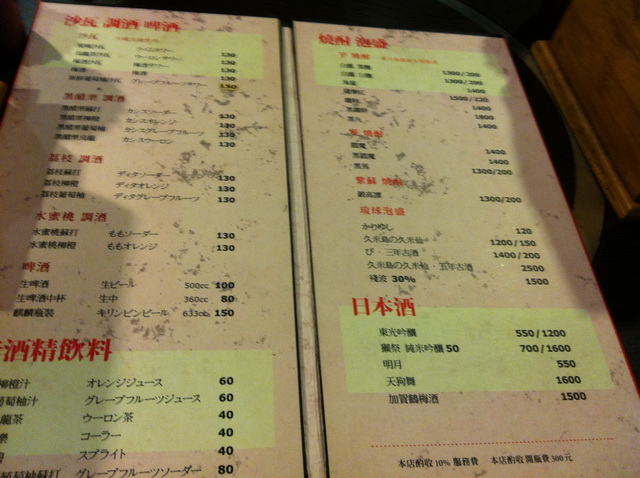 沙瓦 調酒 啤酒
沙瓦
ライムサワー 130
ウーロンサワー 130
梅酒 梅酒サワー 130
グレープフルーツサワー 150
黑醋栗 調酒
黑醋栗蘇打 カシスソーダー 130
黑醋栗柳橙 カシスオレンジ 130
黑醋栗葡萄柚 カシスグレープフルーツ 130
黑醋栗烏龍 カシスウーロン 130
荔枝 調酒
荔枝蘇打 ディタソーダー 130
荔枝柳橙 ディタオレンジ 130
荔枝葡萄柚 ディタグレープフルーツ 130
水蜜桃 調酒
水蜜桃蘇打 ももソーダー 130
水蜜桃柳橙 ももオレンジ 130
啤酒
生啤酒 生ビール 500cc 100
生啤酒中杯 生中 360cc 80
麒麟瓶裝 キリンビンビール 633cc 150
酒精飲料
柳橙汁 オレンジジュース 60
葡萄柚汁 グレープフルーツジュース 60
龍茶 ウーロン茶 40
樂 コーラー 40
スプライト 40
葡萄柚蘇打 グレープフルーツソーダー 80
燒酎 泡盛
芋 燒酎
1300 / 200
1300 / 200
1400
1500 / 220
1400
1800
1400
麥 燒酎
1400
1400
1300 / 200
紫蘇 燒酎
鍛高譚 1300 / 200
琉球泡盛
かりゆし 120
久米島の久米仙 1200 / 150
び・三年古酒 1400 / 200
久米島の久米仙・五年古酒 2500
殘波 30% 1500
日本酒
東光吟釀 550 / 1200
獺祭 純米吟釀 50 700 / 1600
明月 550
天狗舞 1600
加賀鶴梅酒 1500
本店酌收 10% 服務費 本店酌收 開瓶費 500 元